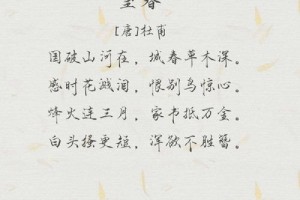 望春
[唐]杜甫
国破山河在，城春草木深。
感时花溅泪，恨别鸟惊心。
烽火连三月，家书抵万金。
白头搔更短，浑欲不胜簪。